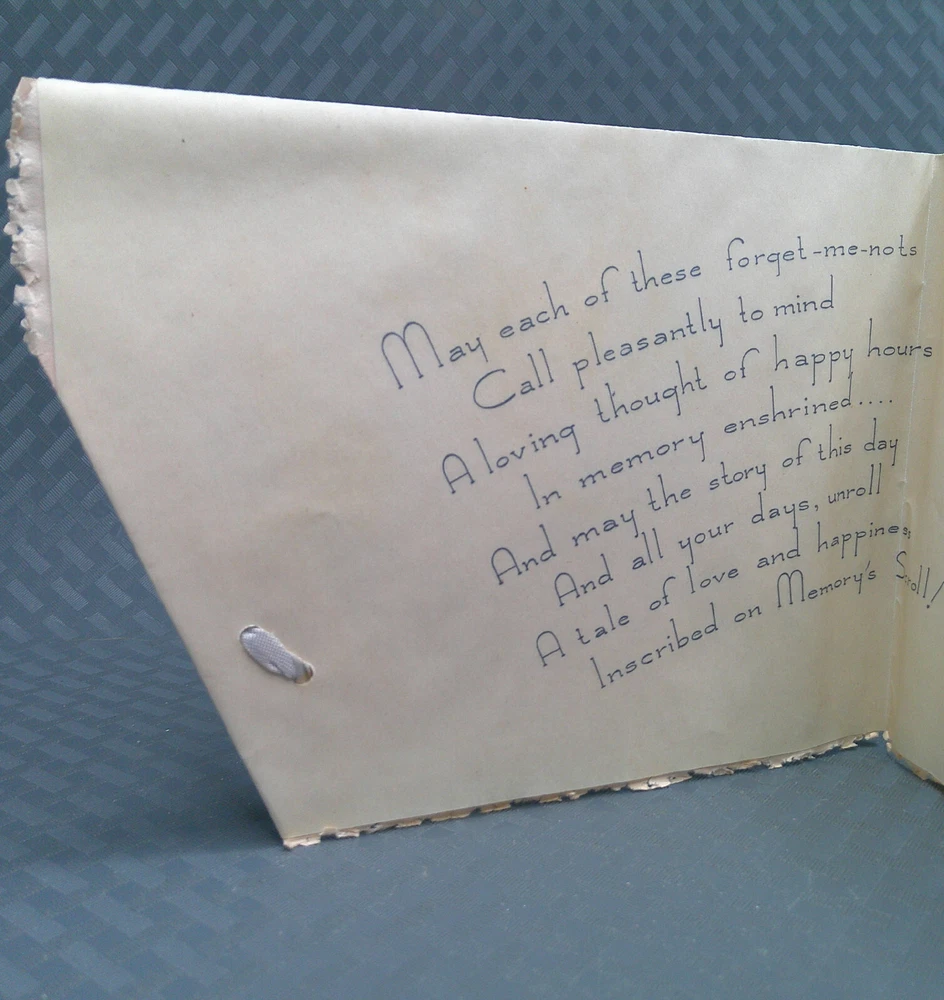 May each of these forget-me-nots
Call pleasantly to mind
A loving thought of happy hours
In memory enshrined....
And may the story of this day
And all your days, unroll
A tale of love and happiness
Inscribed on Memory's Scroll!